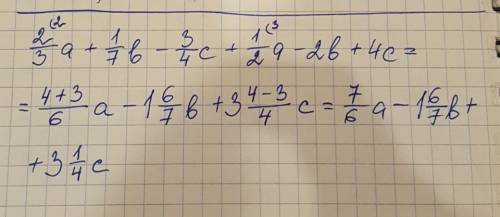 2/3⁽² a + 1/7 b - 3/4 c + 1/2⁽³ a - 2b + 4c =
= 4+3/6 a - 1 6/7 b + 3 4-3/4 c = 7/6 a - 1 6/7 b +
+ 3 1/4 c